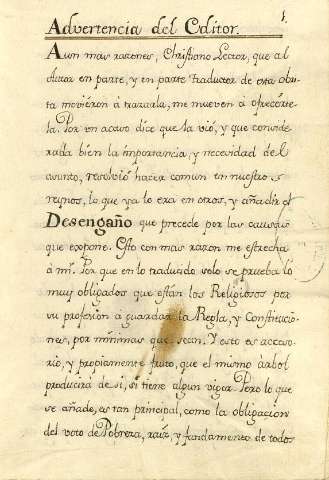 1.
Advertencia del Editor.
Aun mas razones, Christiano Lector, que al
Autor en parte, y en parte traductor de esta ob-
ra movieron á trazarla, me mueven á ofrecerte-
la. Por un acaso dice que la vió, y que conside-
rada bien la importancia, y necesidad del
asunto, resolvió hacer comun en nuestros
reynos, lo que ya lo era en otros, y añadir el
Desengaño que precede por las causas
que expone. Esto con mas razon me estrecha
á mi. Por que en lo traducido solo se prueba lo
muy obligados que están los Religiosos por
su profesion á guardar la Regla, y Constitucio-
nes, por minimas que sean. Y esto es acceso-
rio, y propiamente fruto, que el mismo árbol
producirá de sí, si tiene algun vigor. Pero lo que
se añade, es tan principal, como la obligacion
del voto de Pobreza, raíz, y fundamento de todos